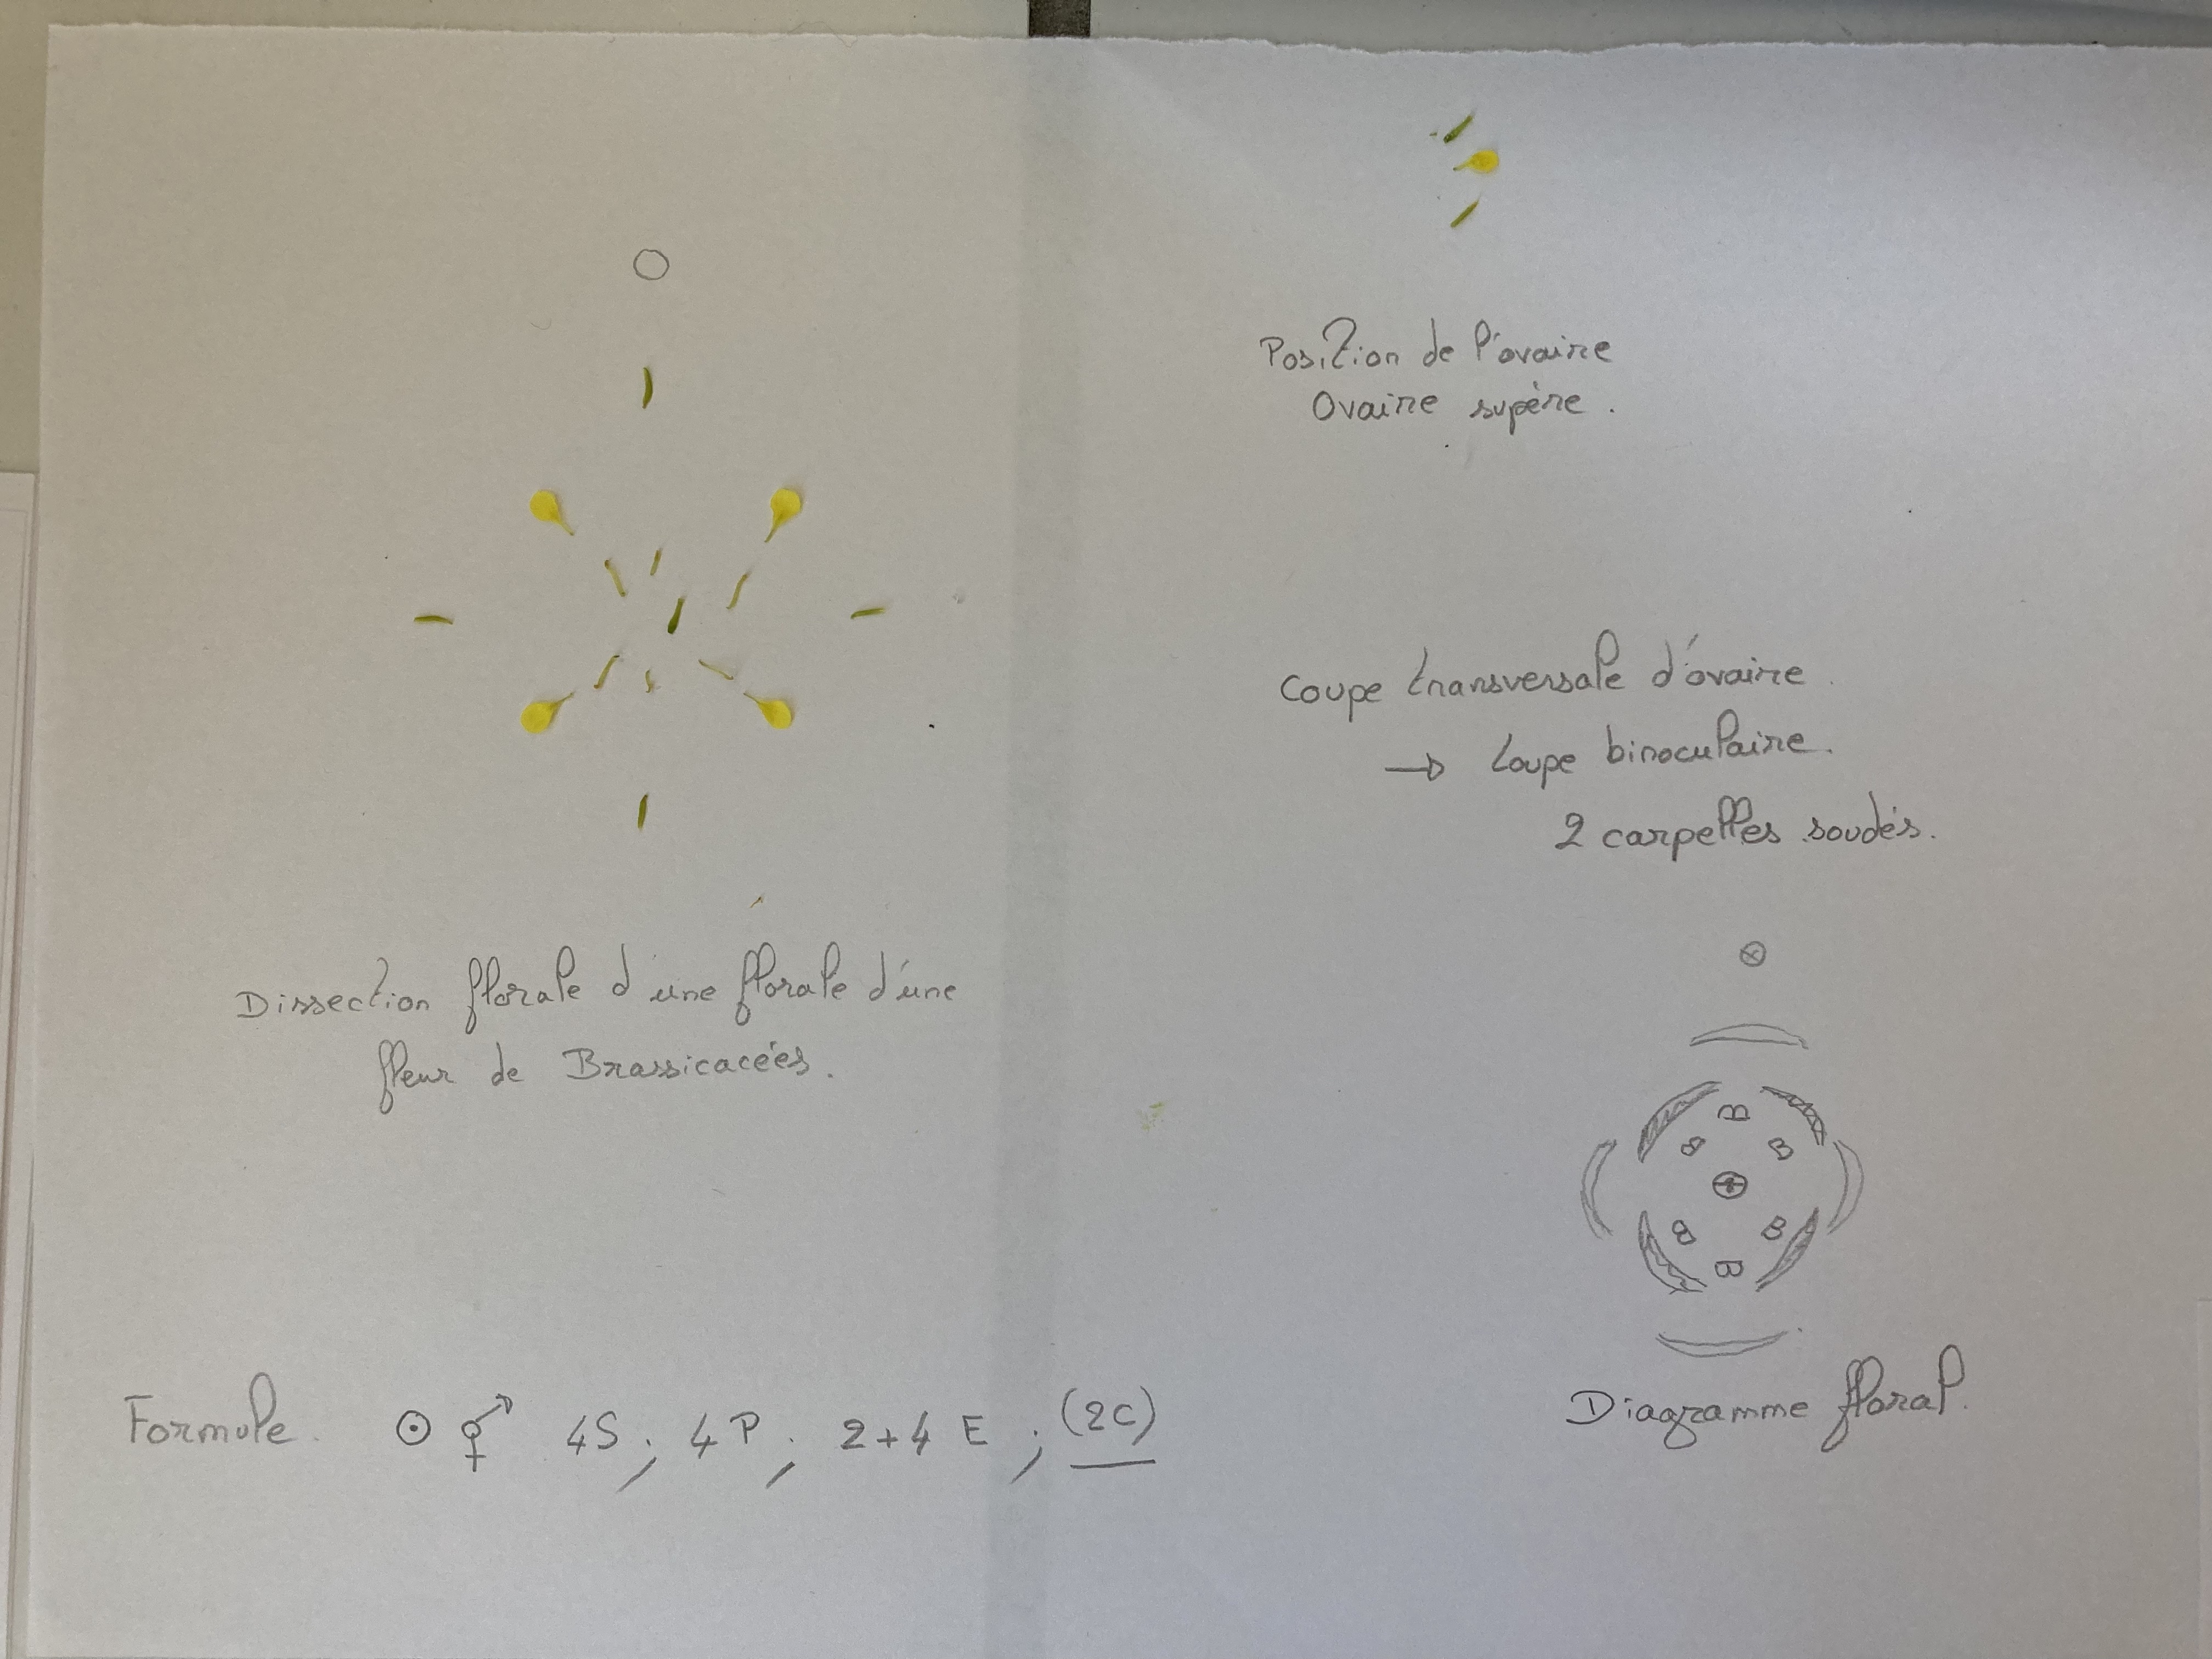 Position de l'ovaire
Ovaire supère.
Coupe transversale d'ovaire.
→ Loupe binoculaire.
2 carpelles soudés.
Dissection florale d'une florale d'une
fleur de Brassicacées.
Formule. ⊙ ⚥ 4S ; 4P ; 2+4 E ; (2C)
Diagramme floral.